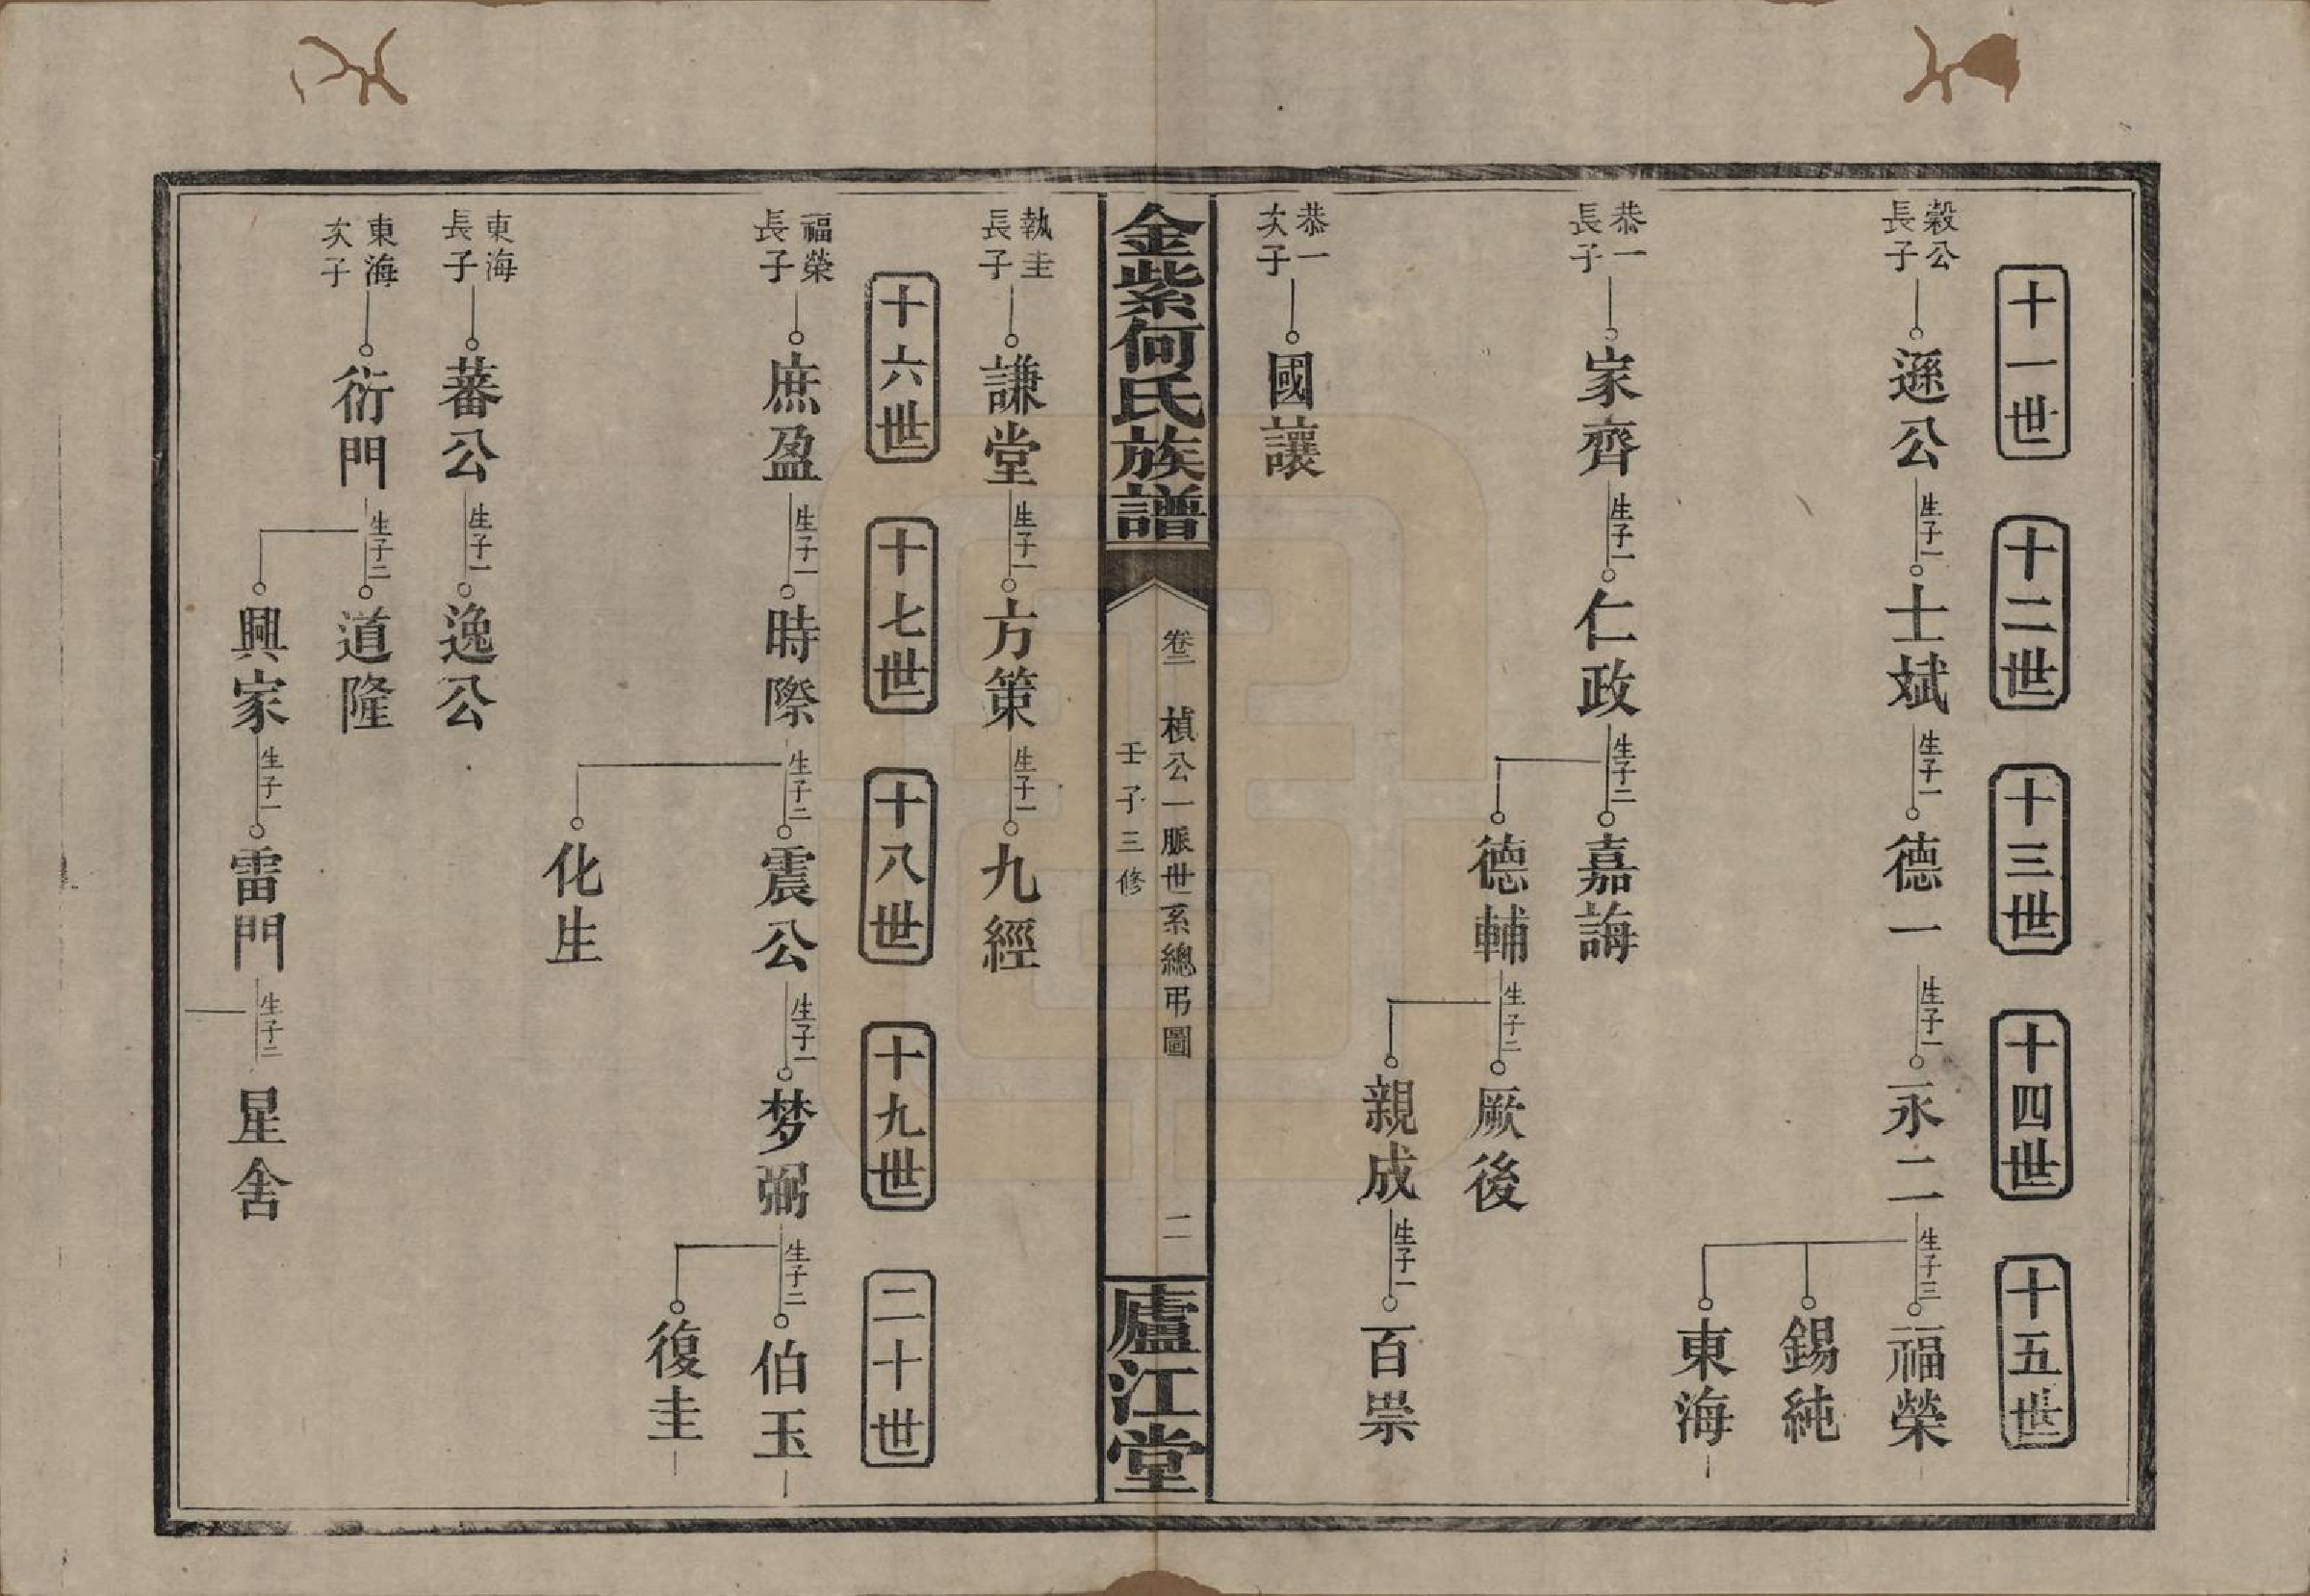 十一世
十二世
十三世
十四世
十五世
穀公
長子
遜公
生子一
士斌
生子一
德一
生子一
永二
生子三
福榮
錫純
東海
恭一
長子
家齊
生子一
仁政
生子二
嘉謀
德輔
生子二
厥後
親成
生子一
百祟
恭一
次子
國讓
金紫何氏族譜
卷三 楨公一脈世系總弔圖
壬子三修
二
廬江堂
執圭
長子
謙堂
生子一
方策
生子一
九經
十六世
十七世
十八世
十九世
二十世
福榮
長子
庶盈
生子一
時際
生子二
震公
生子一
梦弼
生子二
伯玉
復圭
化生
東海
長子
蕃公
生子一
逸公
東海
次子
衍門
生子二
道隆
興家
生子一
雷門
生子二
星舍